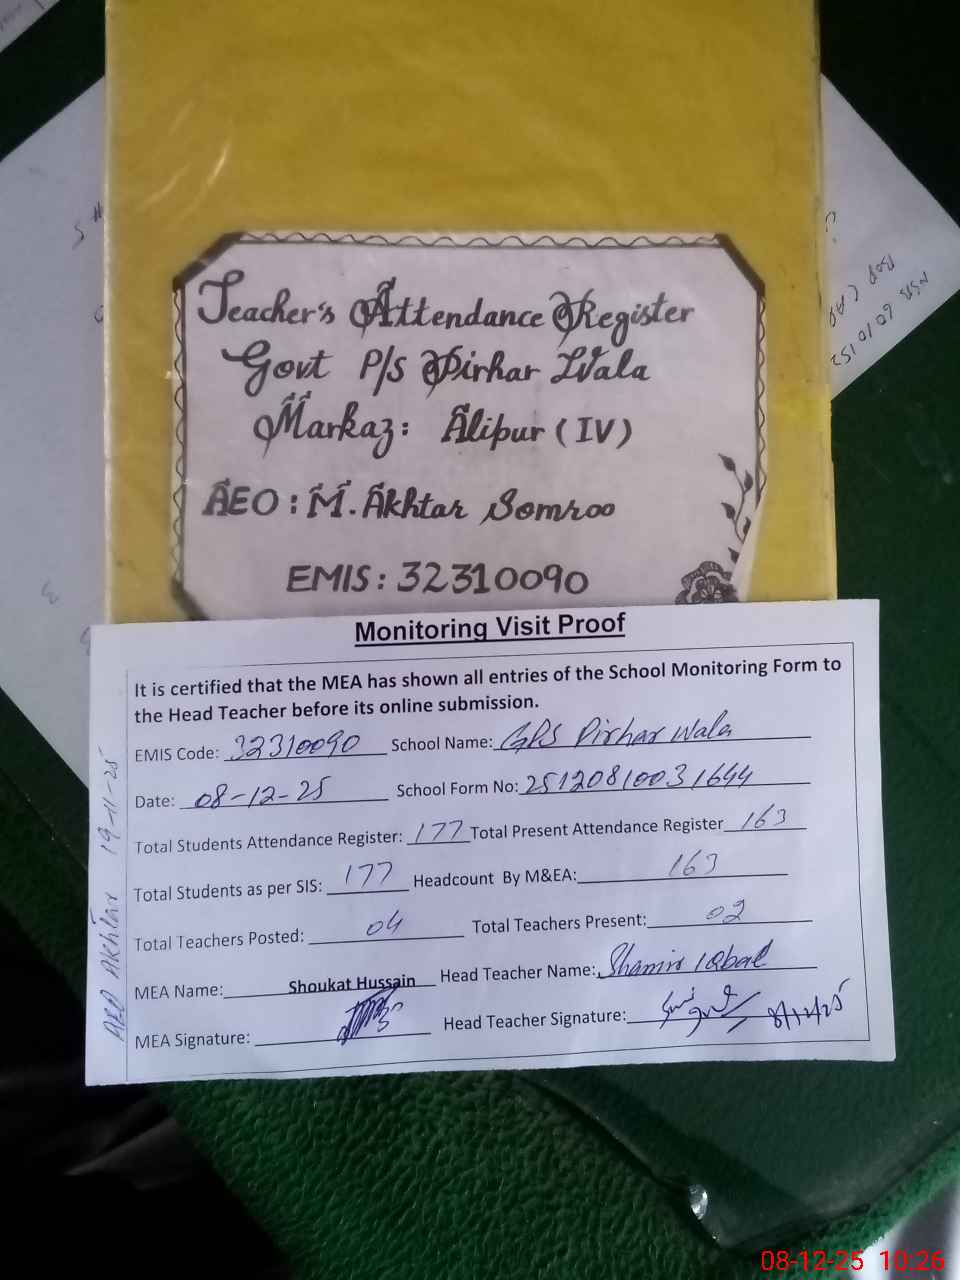 Teacher's Attendance Register
Govt P/S Pirhar Wala
Markaz: Alipur (IV)
AEO: M. Akhtar Somroo
EMIS: 32310090
Monitoring Visit Proof
It is certified that the MEA has shown all entries of the School Monitoring Form to
the Head Teacher before its online submission.
EMIS Code: 32310090 School Name: GPS Pirhar Wala
Date: 08-12-25 School Form No: 25120810031644
Total Students Attendance Register: 177 Total Present Attendance Register 163
Total Students as per SIS: 177 Headcount By M&EA: 163
Total Teachers Posted: 04 Total Teachers Present: 02
MEA Name: Shoukat Hussain Head Teacher Name: Shamim Iqbal
MEA Signature: Head Teacher Signature: 8/12/25
AEO Akhtar 19-11-25
08-12-25 10:26